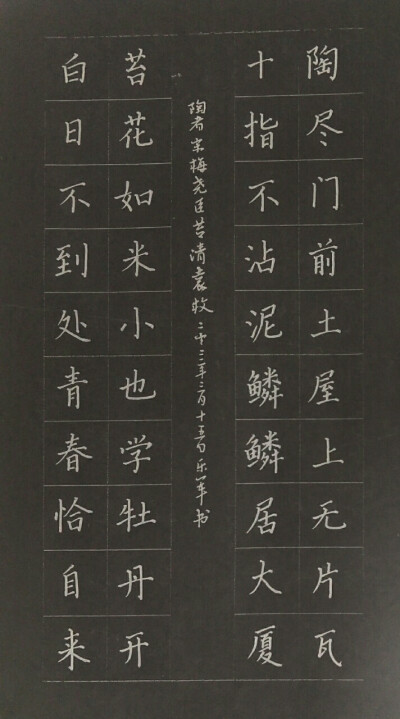 陶尽门前土屋上无片瓦
十指不沾泥鳞鳞居大厦
陶者宋梅尧臣苔清袁枚三年三月十五日乐军书
苔花如米小也学牡丹开
白日不到处青春恰自来